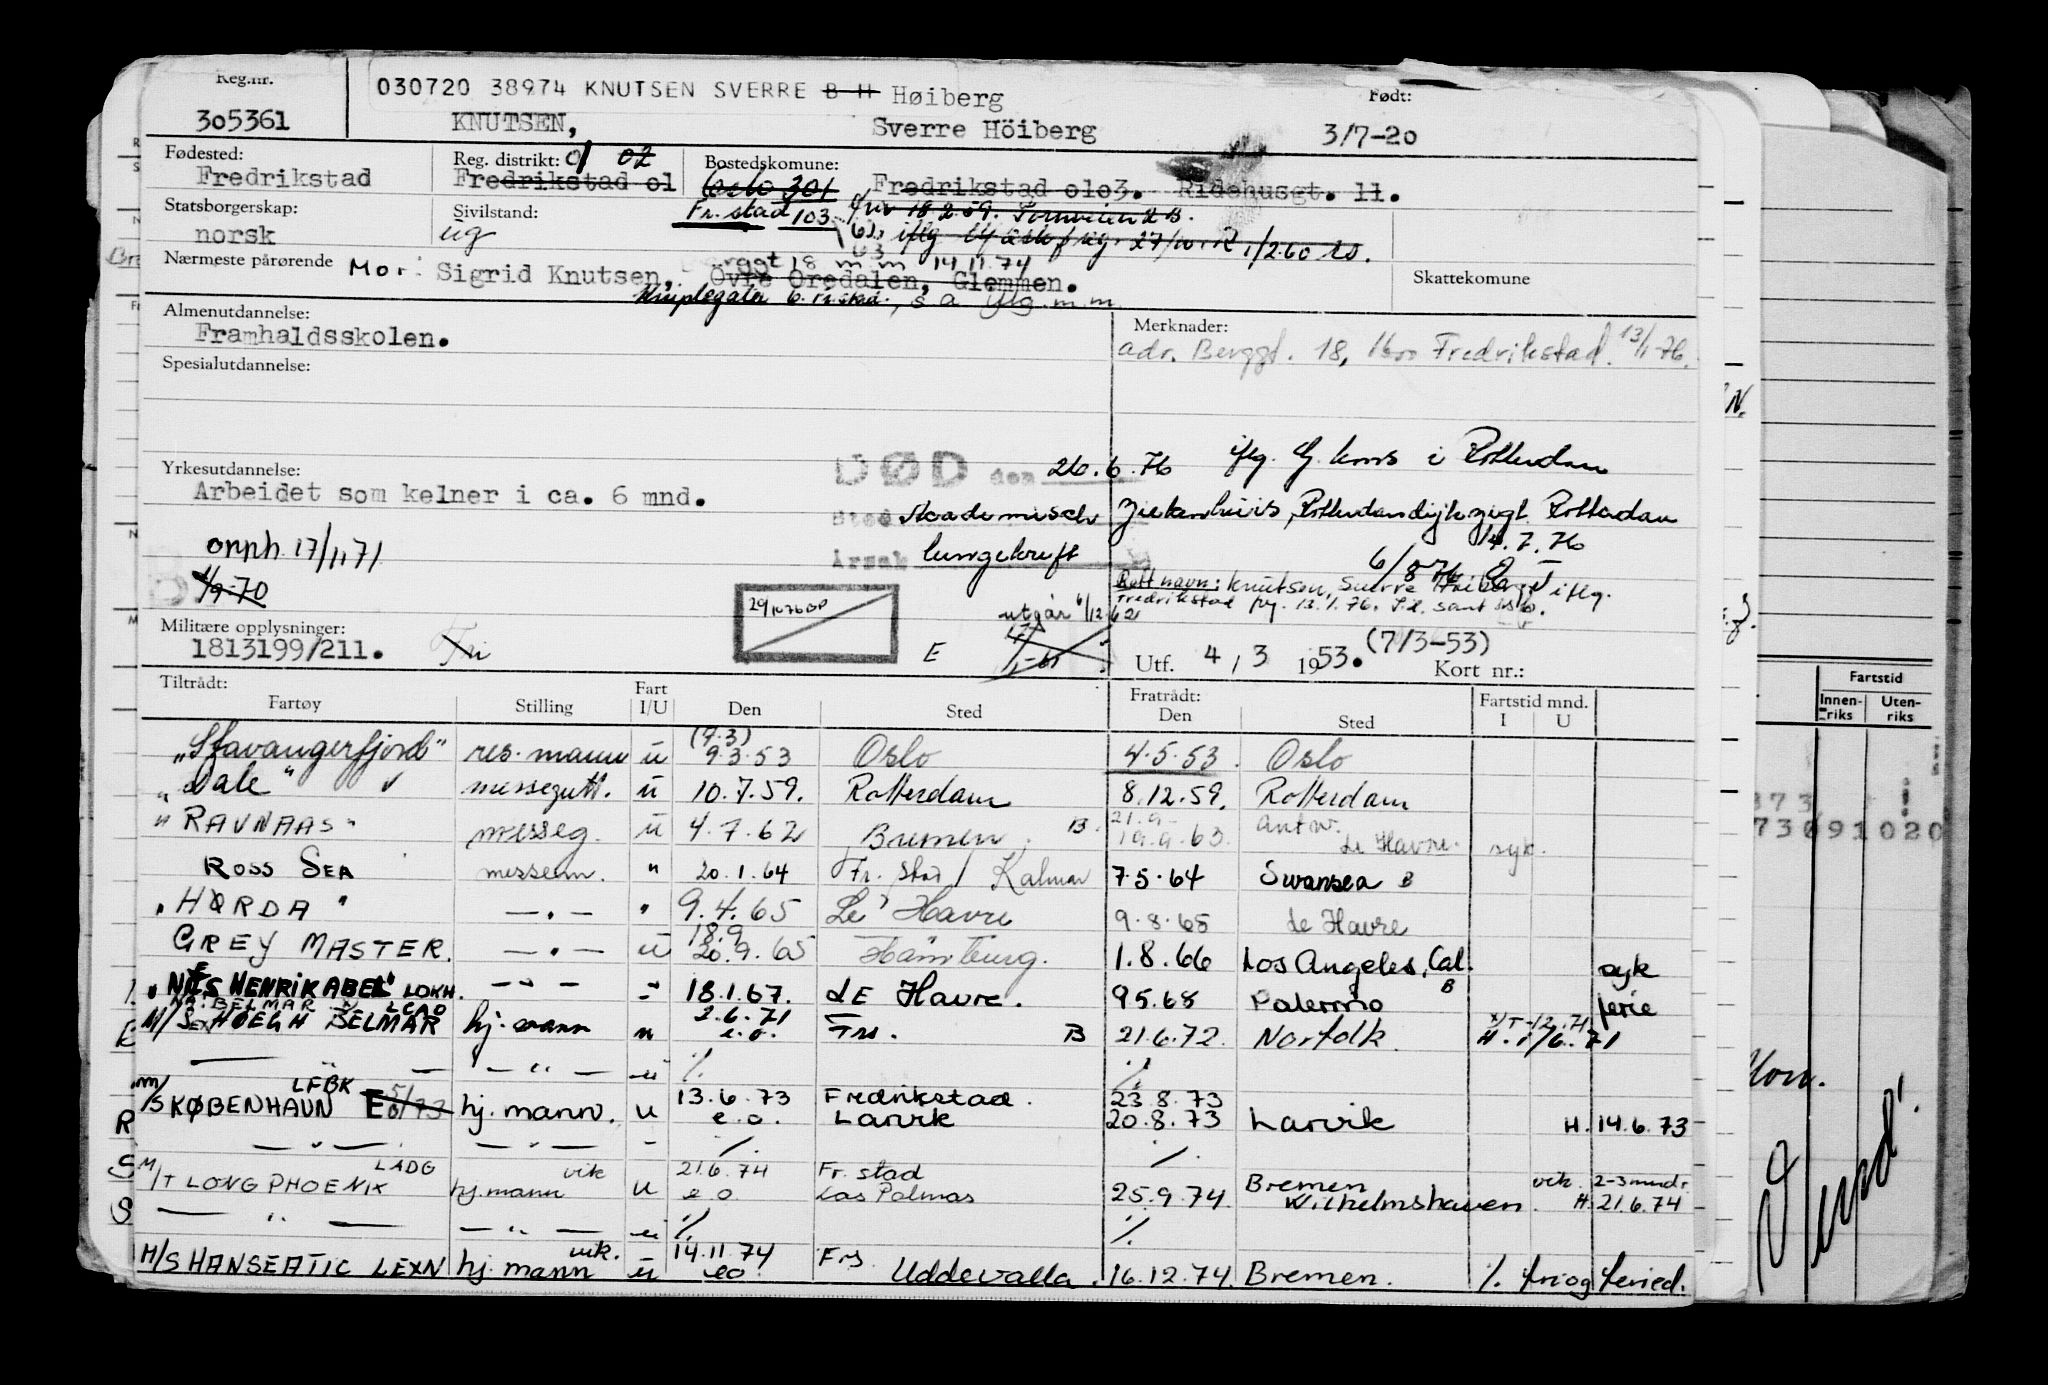 Reg.nr.
030720 38974 KNUTSEN SVERRE B H Høiberg
Født:
305361 KNUTSEN, Sverre Höiberg 3/7-20
Fødested: Reg. distrikt: 01 02 Bostedskomune:
Fredrikstad Fredrikstad 01 Oslo 301 Fredrikstad 0103. Ridehusgt. 11.
Statsborgerskap: Sivilstand: Fr. stad 103
norsk ug
Nærmeste pårørende Mor: Sigrid Knutsen, Övre Oredalen, Glemmen. Skattekomune
18 m m 14.11.74
6. Fr.stad., s a m.m
Almenutdannelse: Merknader:
Framhaldsskolen. adr. Berggt. 18, 1600 Fredrikstad. 13/1-76.
Spesialutdannelse:
Yrkesutdannelse: DØD den 26.6.76 iflg. G. kons i Rotterdam
Arbeidet som kelner i ca. 6 mnd.
Sted Academisch Ziekenhuis, Rotterdam
opph. 17/11.71 Årsak lungekreft 4.7.76
1/9-70
Rett navn: Knutsen, Sverre Høiberg iflg.
Fredrikstad 13.1.76.
Militære opplysninger: utgår
1813199/211. Fri E Utf. 4 / 3 1953. (7/3-53) Kort nr.:
Tiltrådt: Fratrådt:
Fartøy Stilling Fart I/U Den Sted Den Sted Fartstid mnd. I U
"Stavangerfjord" res. mann u (7.3) 9.3.53 Oslo 4.5.53. Oslo
"Dale" messegutt. u 10.7.59. Rotterdam 8.12.59. Rotterdam
"RAVNAAS" messeg. u 4.7.62 Bremen B. 21.9 19.9.63. Antw. Le Havre. syk.
ROSS SEA messem. " 20.1.64 Fr. stad / Kalmar 7.5.64 Swansea B
"HØRDA" — . — " 9.4.65 Le Havre 9.8.65 Le Havre
GREY MASTER. — . — u 18.9 20.9.65 Hamburg. 1.8.66 Los Angeles, Cal. syk
"NILS HENRIK ABEL" LOKH. — " — 18.1.67. LE Havre. 9.5.68 Palermo B ferie
M/S HØEGH BELMAR LCAO hj. mann u 2.6.71 e.o. B 21.6.72. Norfolk. H. 1/6.71
— " — — " — u % %
M/S KØBENHAVN LFBK hj. mann. u 13.6.73 e.o. Fredrikstad. Larvik 23.8.73 20.8.73 Larvik H. 14.6.73
— " — — " — - % %
M/T LONG PHOENIX LADG hj. mann vik u 21.6.74 e o Fr. stad Las Palmas 25.9.74. Bremen Wilhelmshaven. vik. 2-3 mndr H. 21.6.74
— " — — " — u % %
M/S HANSEATIC LEXN hj. mann vik. u 14.11.74 eo Frs Uddevalla. 16.12.74. Bremen. %. fri og feried.
Fartstid
Innen-riks Uten-riks
373
73091020